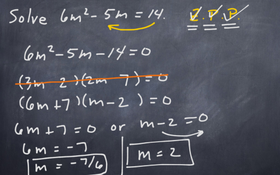 Solve 6m² - 5m = 14. Z.P.P.
6m² - 5m - 14 = 0
(3m 2)(2m 7) = 0
(6m + 7)(m - 2) = 0
6m + 7 = 0 or m - 2 = 0
6m = -7
m = -7/6 m = 2